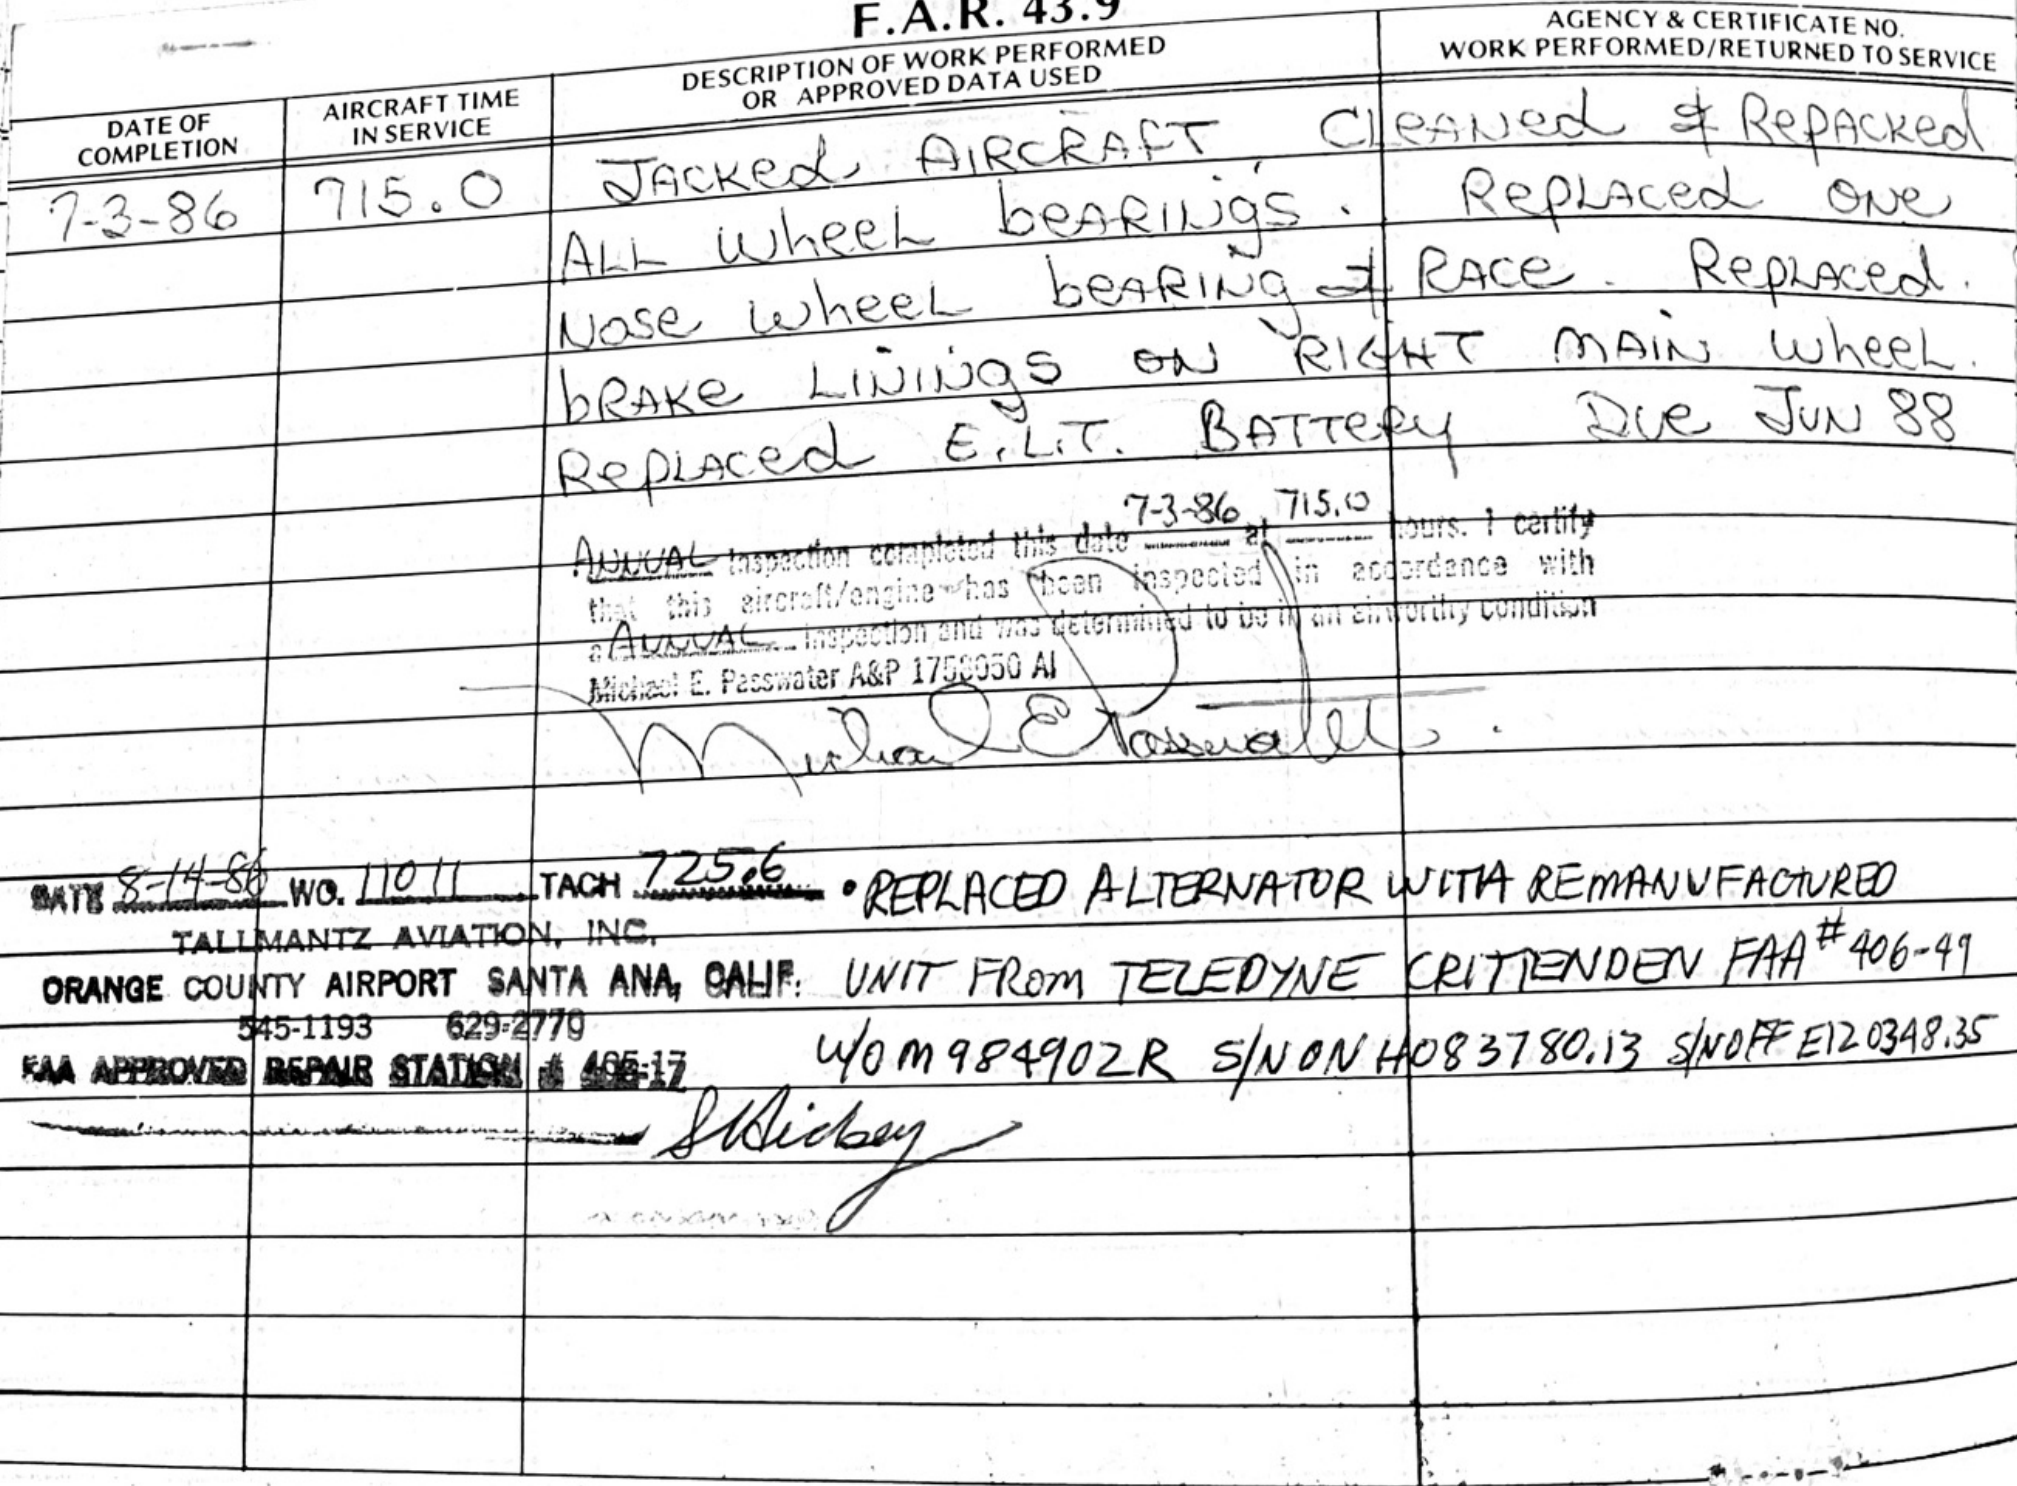 F.A.R. 43.9
DATE OF COMPLETION
AIRCRAFT TIME IN SERVICE
DESCRIPTION OF WORK PERFORMED OR APPROVED DATA USED
AGENCY & CERTIFICATE NO. WORK PERFORMED/RETURNED TO SERVICE
7-3-86 715.0 JACKed AIRCRAFT, CLeANed & RepACKed
ALL wheeL beARINgS. RepLAced ONe
Nose wheeL beARINg & RACe. RepLAced
bRAKe LININgS ON RIGHT MAIN wheeL.
RepLAced E.L.T. BATTeRy Due JUN 88
ANNUAL Inspection completed this date 7-3-86 at 715.0 hours. I certify
that this aircraft/engine has been inspected in accordance with
a ANNUAL inspection and was determined to be in an airworthy condition
Michael E. Passwater A&P 1758050 AI
Michael E Passwater
DATE 8-14-86 WO. 11011 TACH 725.6 • REPLACED ALTERNATOR WITH REMANUFACTURED
TALLMANTZ AVIATION, INC.
ORANGE COUNTY AIRPORT SANTA ANA, CALIF. UNIT FROM TELEDYNE CRITTENDEN FAA# 406-49
545-1193 629-2770
FAA APPROVED REPAIR STATION # 405-17 W/O M984902R S/N ON H083780.13 S/N OFF E120348.35